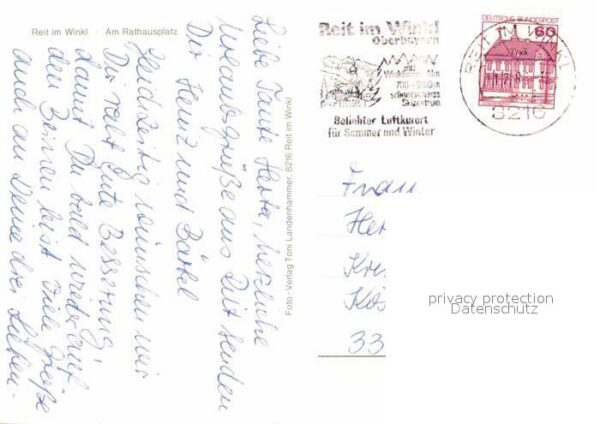 Reit im Winkl · Am Rathausplatz
Liebe Tante Herta, herzliche
Urlaubsgrüße aus RiW senden
Dir Heinz und Bärbel
Gleichzeitig wünschen wir
Dir recht gute Besserung,
damit Du bald wieder auf
den Beinen bist. Viele Grüße
auch an Deine drei Lieben.
Foto-Verlag Toni Landenhammer, 8216 Reit im Winkl
Reit im Winkl
Oberbayern
mit
Winklmoos-Alm
schneesicheres
Skizentrum
Beliebter Luftkurort
für Sommer und Winter
DEUTSCHE BUNDESPOST
60
REIT IM WINKL
8216
Frau
Her
Kre
Kös
33
privacy protection
Datenschutz